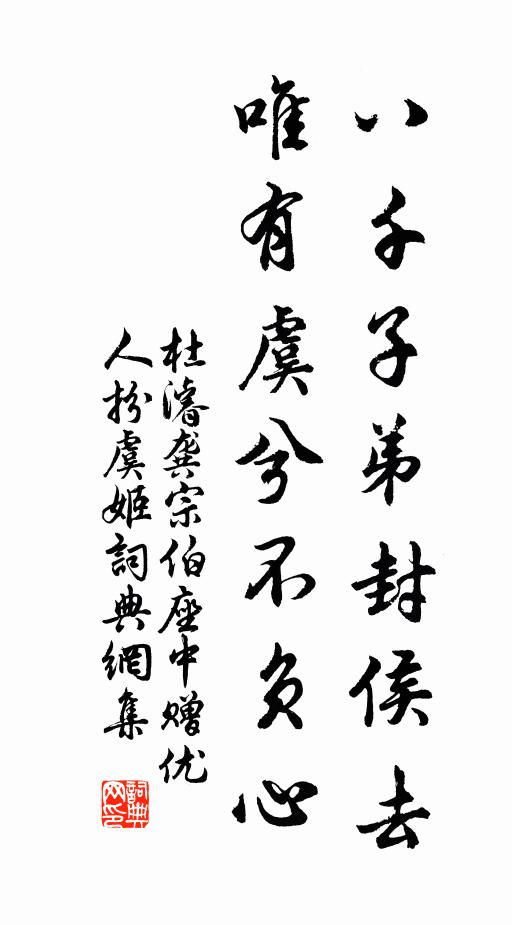 八千子弟封侯去
唯有虞兮不负心
杜濬龚宗伯座中赠优
人扮虞姬詞典網集
詞典
网印